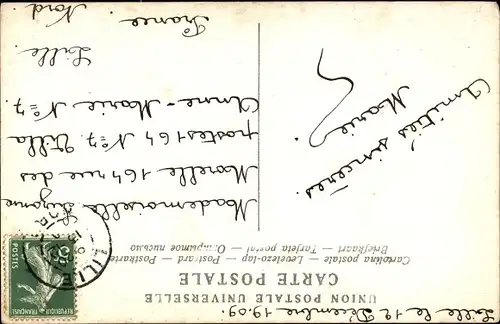 UNION POSTALE UNIVERSELLE
CARTE POSTALE
Cartolina postale — Levelezo-lap — Postcard — Postkarte
Briefkaart — Tarjeta postal — Открытое письмо
Lille le 12 Décembre 19.09.
Amitiés sincères.
Marie.
Mademoiselle Suzanne
Morelle 164 rue des
postes 164 N=7. Villa
Anne-Marie N=7.
Lille
France Nord.
LILLE
POSTES
REPUBLIQUE FRANÇAISE